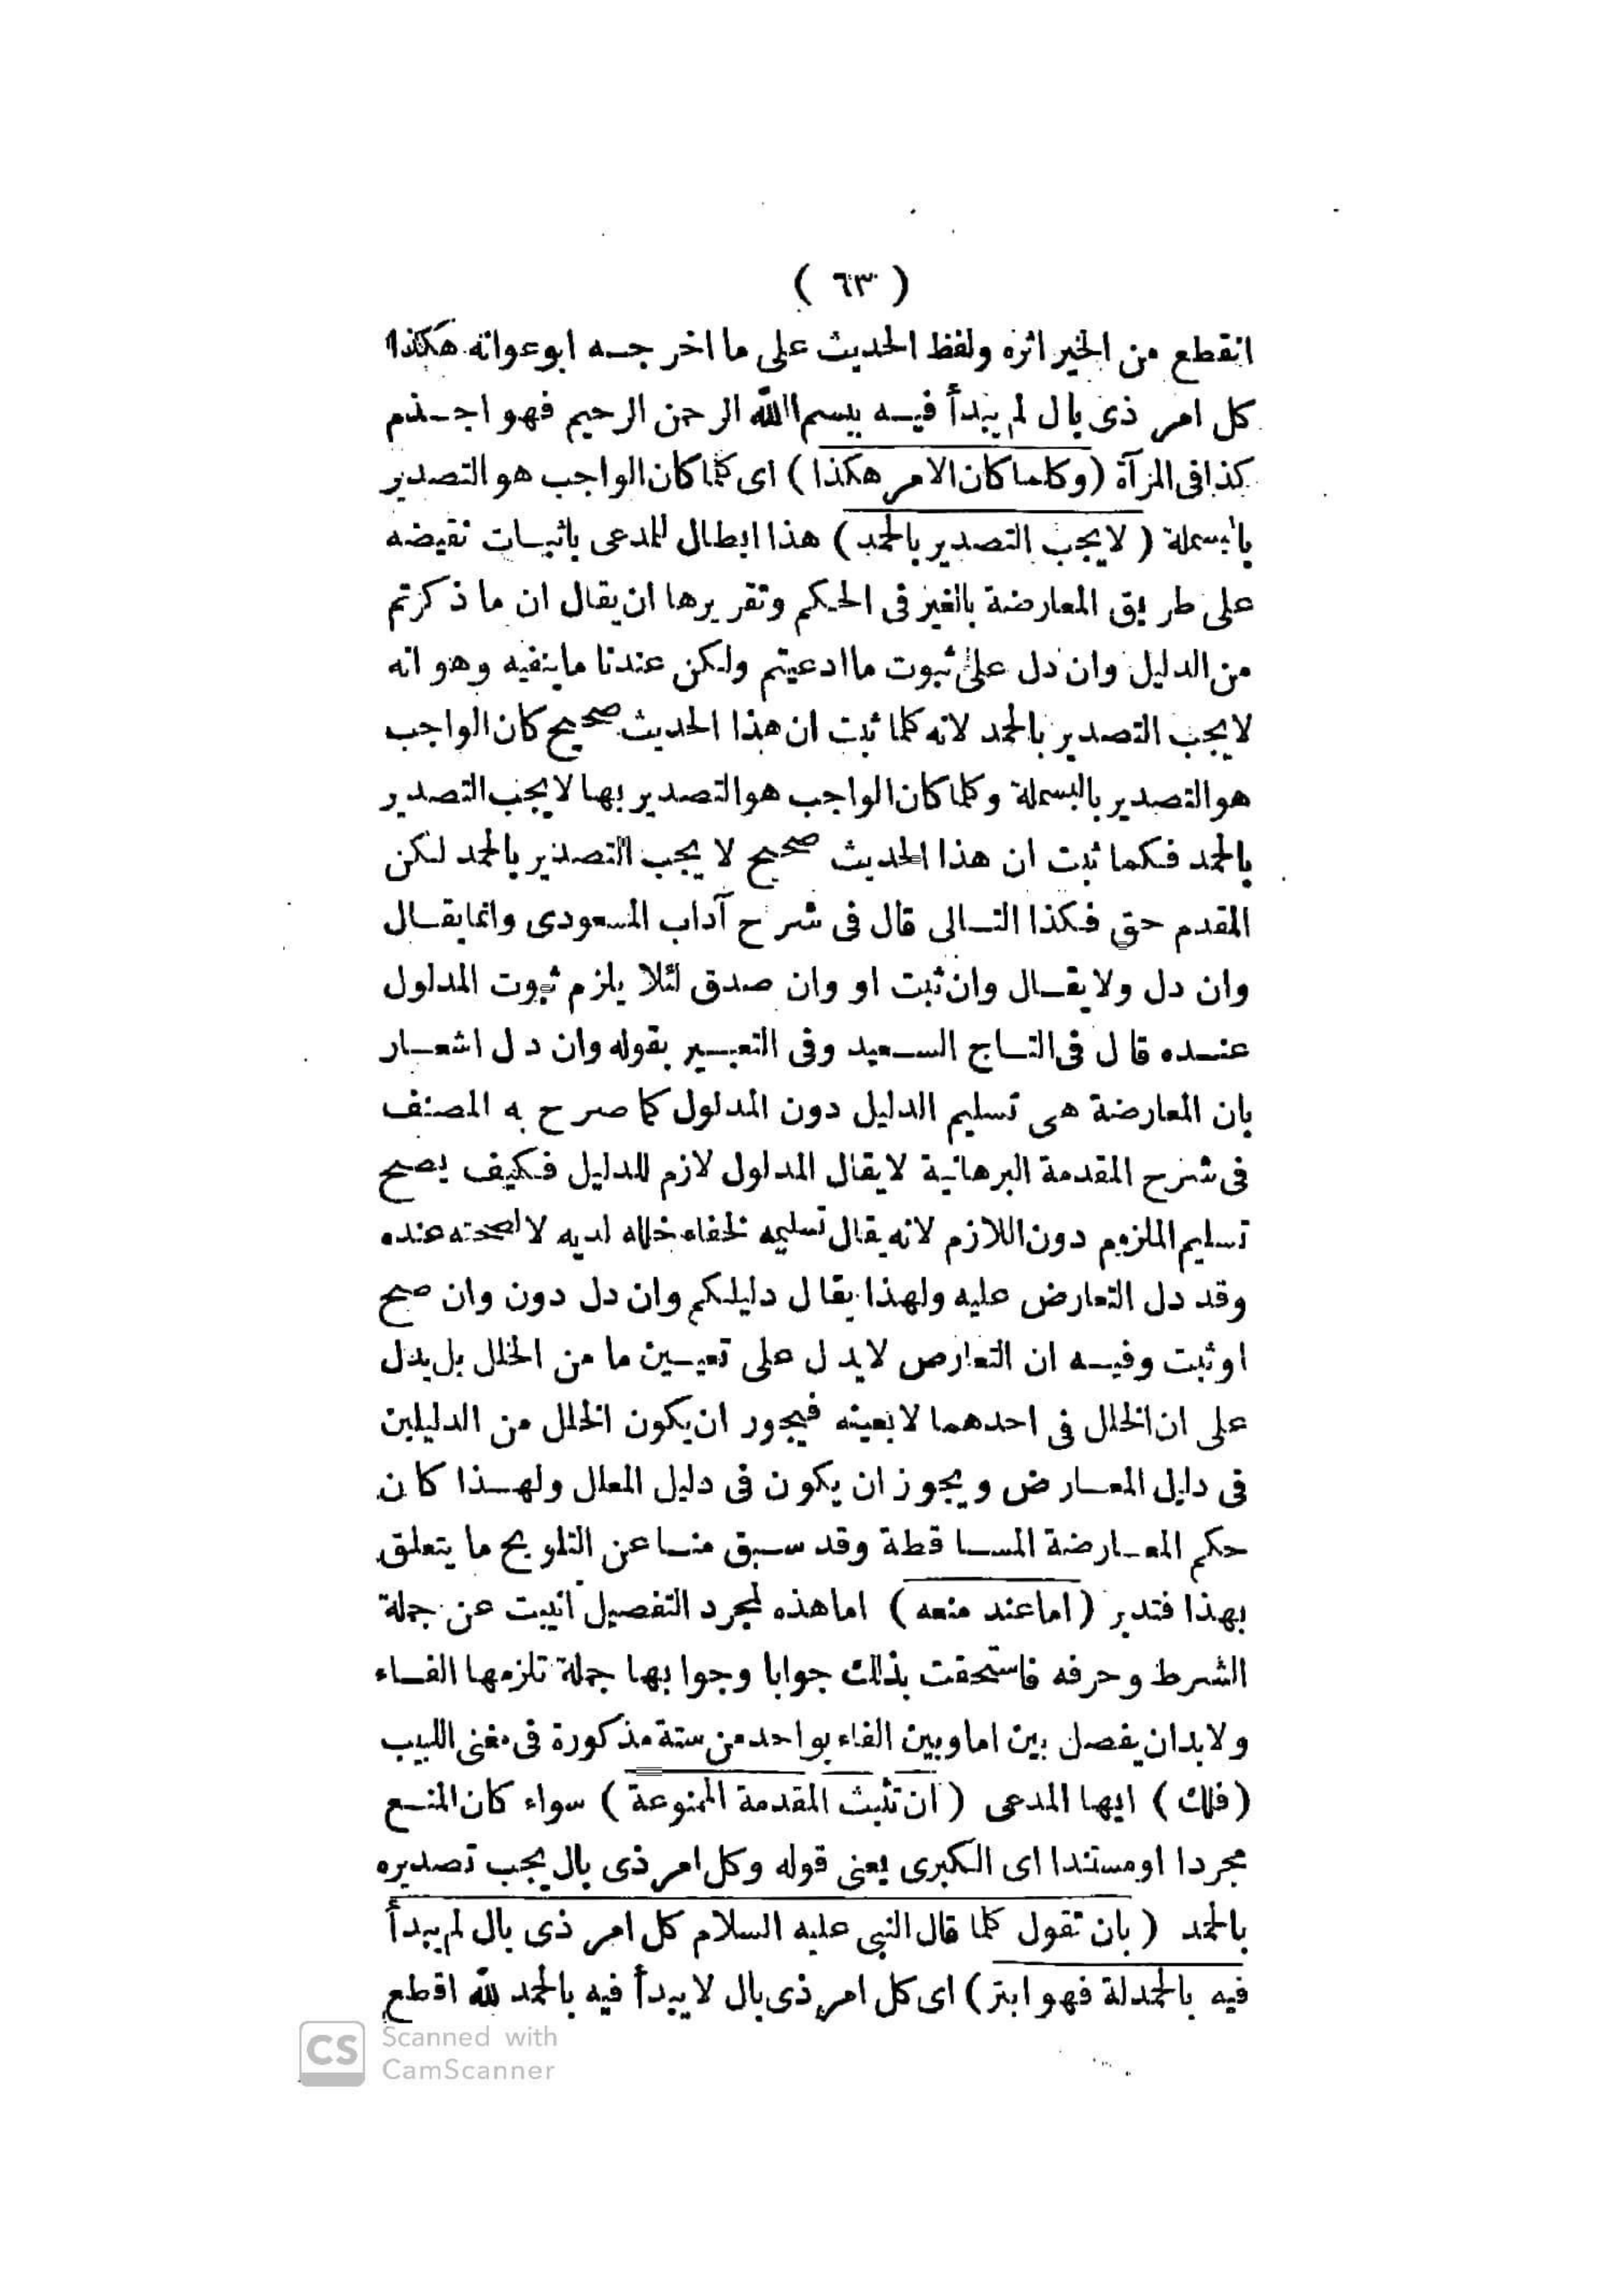 ( ٦٣ )
انقطع من الخير اثره ولفظ الحديث على ما اخرجه ابوعوانه هكذا
كل امر ذى بال لم يبدأ فيه ببسم الله الرحمن الرحيم فهو اجذم
كذا فى المرآة ( وكلما كان الامر هكذا ) اى كلما كان الواجب هو التصدير
بالبسملة ( لا يجب التصدير بالحمد ) هذا ابطال للمدعى باثبات نقيضه
على طريق المعارضة بالغير فى الحكم وتقريرها ان يقال ان ما ذكرتم
من الدليل وان دل على ثبوت ما ادعيتم ولكن عندنا ما ينفيه وهو انه
لا يجب التصدير بالحمد لانه كلما ثبت ان هذا الحديث صحيح كان الواجب
هو التصدير بالبسملة وكلما كان الواجب هو التصدير بها لا يجب التصدير
بالحمد فكما ثبت ان هذا الحديث صحيح لا يجب التصدير بالحمد لكن
المقدم حق فكذا التالى قال فى شرح آداب المسعودى وانما يقال
وان دل ولا يقال وان ثبت او وان صدق لئلا يلزم ثبوت المدلول
عنده قال فى التاج السعيد وفى التعبير بقوله وان دل اشعار
بان المعارضة هى تسليم الدليل دون المدلول كما صرح به المصنف
فى شرح المقدمة البرهانية لا يقال المدلول لازم للدليل فكيف يصح
تسليم الملزوم دون اللازم لانه يقال تسليمه لخفاء خلله لديه لا لصحته عنده
وقد دل التعارض عليه ولهذا يقال دليلكم وان دل دون وان صح
او ثبت وفيه ان التعارض لا يدل على تعيين ما من الخلل بل يدل
على ان الخلل فى احدهما لا بعينه فيجوز ان يكون الخلل من الدليلين
فى دليل المعارض ويجوز ان يكون فى دليل المعلل ولهذا كان
حكم المعارضة المساقطة وقد سبق منا عن التلويح ما يتعلق
بهذا فتدبر ( اما عند منعه ) اما هذه لمجرد التفصيل انيبت عن جملة
الشرط وحرفه فاستحقت بذلك جوابا وجوابها جملة تلزمها الفاء
ولا بد ان يفصل بين اما وبين الفاء بواحد من ستة مذكورة فى مغنى اللبيب
( فلك ) ايها المدعى ( ان تثبت المقدمة الممنوعة ) سواء كان المنع
مجردا او مستندا اى الكبرى يعنى قوله وكل امر ذى بال يجب تصديره
بالحمد ( بان تقول كلما قال النبى عليه السلام كل امر ذى بال لم يبدأ
فيه بالحمدلة فهو ابتر ) اى كل امر ذى بال لا يبدأ فيه بالحمد لله اقطع
CS Scanned with
CamScanner